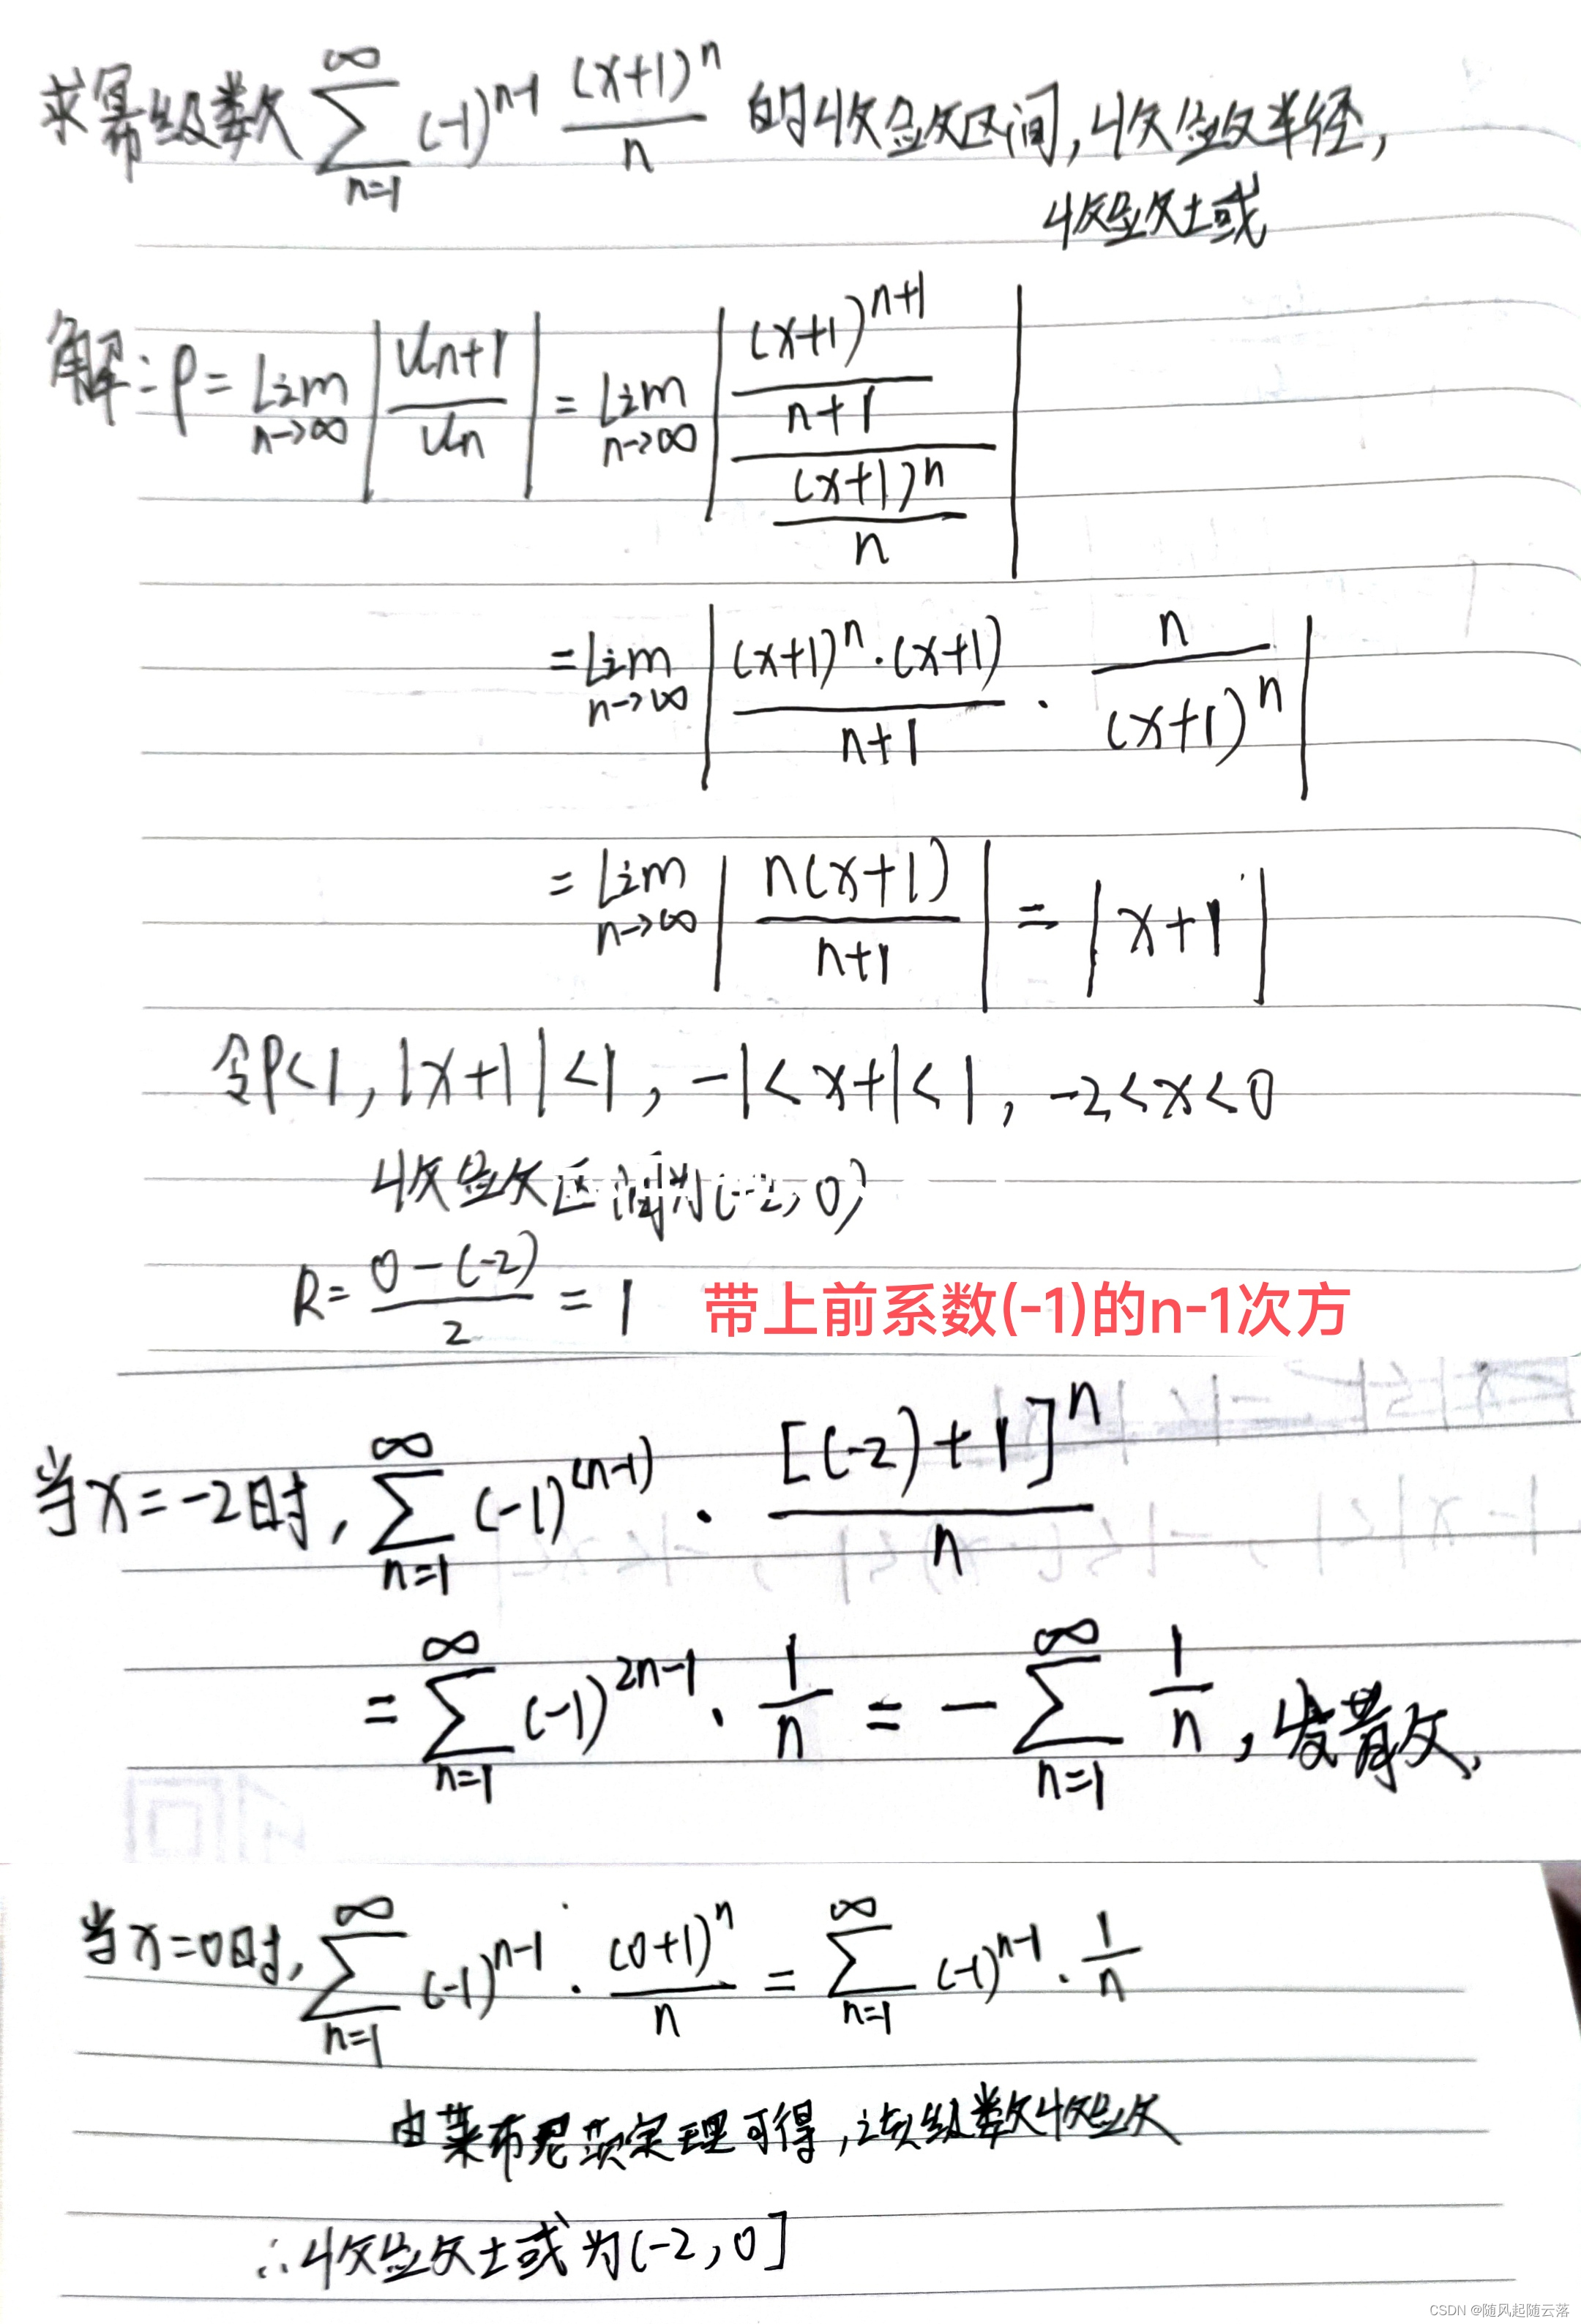 求幂级数 \sum_{n=1}^{\infty} (-1)^{n-1} \frac{(x+1)^n}{n} 的收敛区间,收敛半径,
收敛域
解: ρ = \lim_{n→∞} \left| \frac{u_{n+1}}{u_n} \right| = \lim_{n→∞} \left| \frac{\frac{(x+1)^{n+1}}{n+1}}{\frac{(x+1)^n}{n}} \right|
= \lim_{n→∞} \left| \frac{(x+1)^n·(x+1)}{n+1} · \frac{n}{(x+1)^n} \right|
= \lim_{n→∞} \left| \frac{n(x+1)}{n+1} \right| = |x+1|
令ρ<1, |x+1|<1, -1<x+1<1, -2<x<0
收敛区间为(-2,0)
R = \frac{0-(-2)}{2} = 1 带上前系数(-1)的n-1次方
当x=-2时, \sum_{n=1}^{\infty} (-1)^{(n-1)} · \frac{[(-2)+1]^n}{n}
= \sum_{n=1}^{\infty} (-1)^{2n-1} · \frac{1}{n} = - \sum_{n=1}^{\infty} \frac{1}{n}, 发散,
当x=0时, \sum_{n=1}^{\infty} (-1)^{n-1} · \frac{(0+1)^n}{n} = \sum_{n=1}^{\infty} (-1)^{n-1} · \frac{1}{n}
由莱布尼茨定理可得,该级数收敛
∴收敛域为(-2,0]
CSDN @随风起随云落